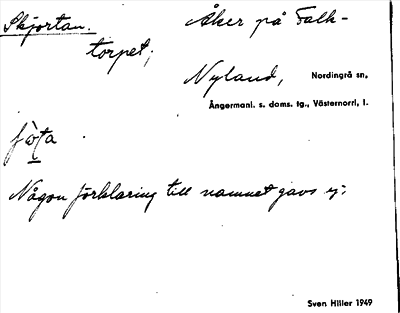 Skjortan. Åker på Falk-
torpet,
Nyland, Nordingrå sn,
Ångermanl. s. doms. tg., Västernorrl. l.
Någon förklaring till namnet gavs ej.
Sven Hiller 1949